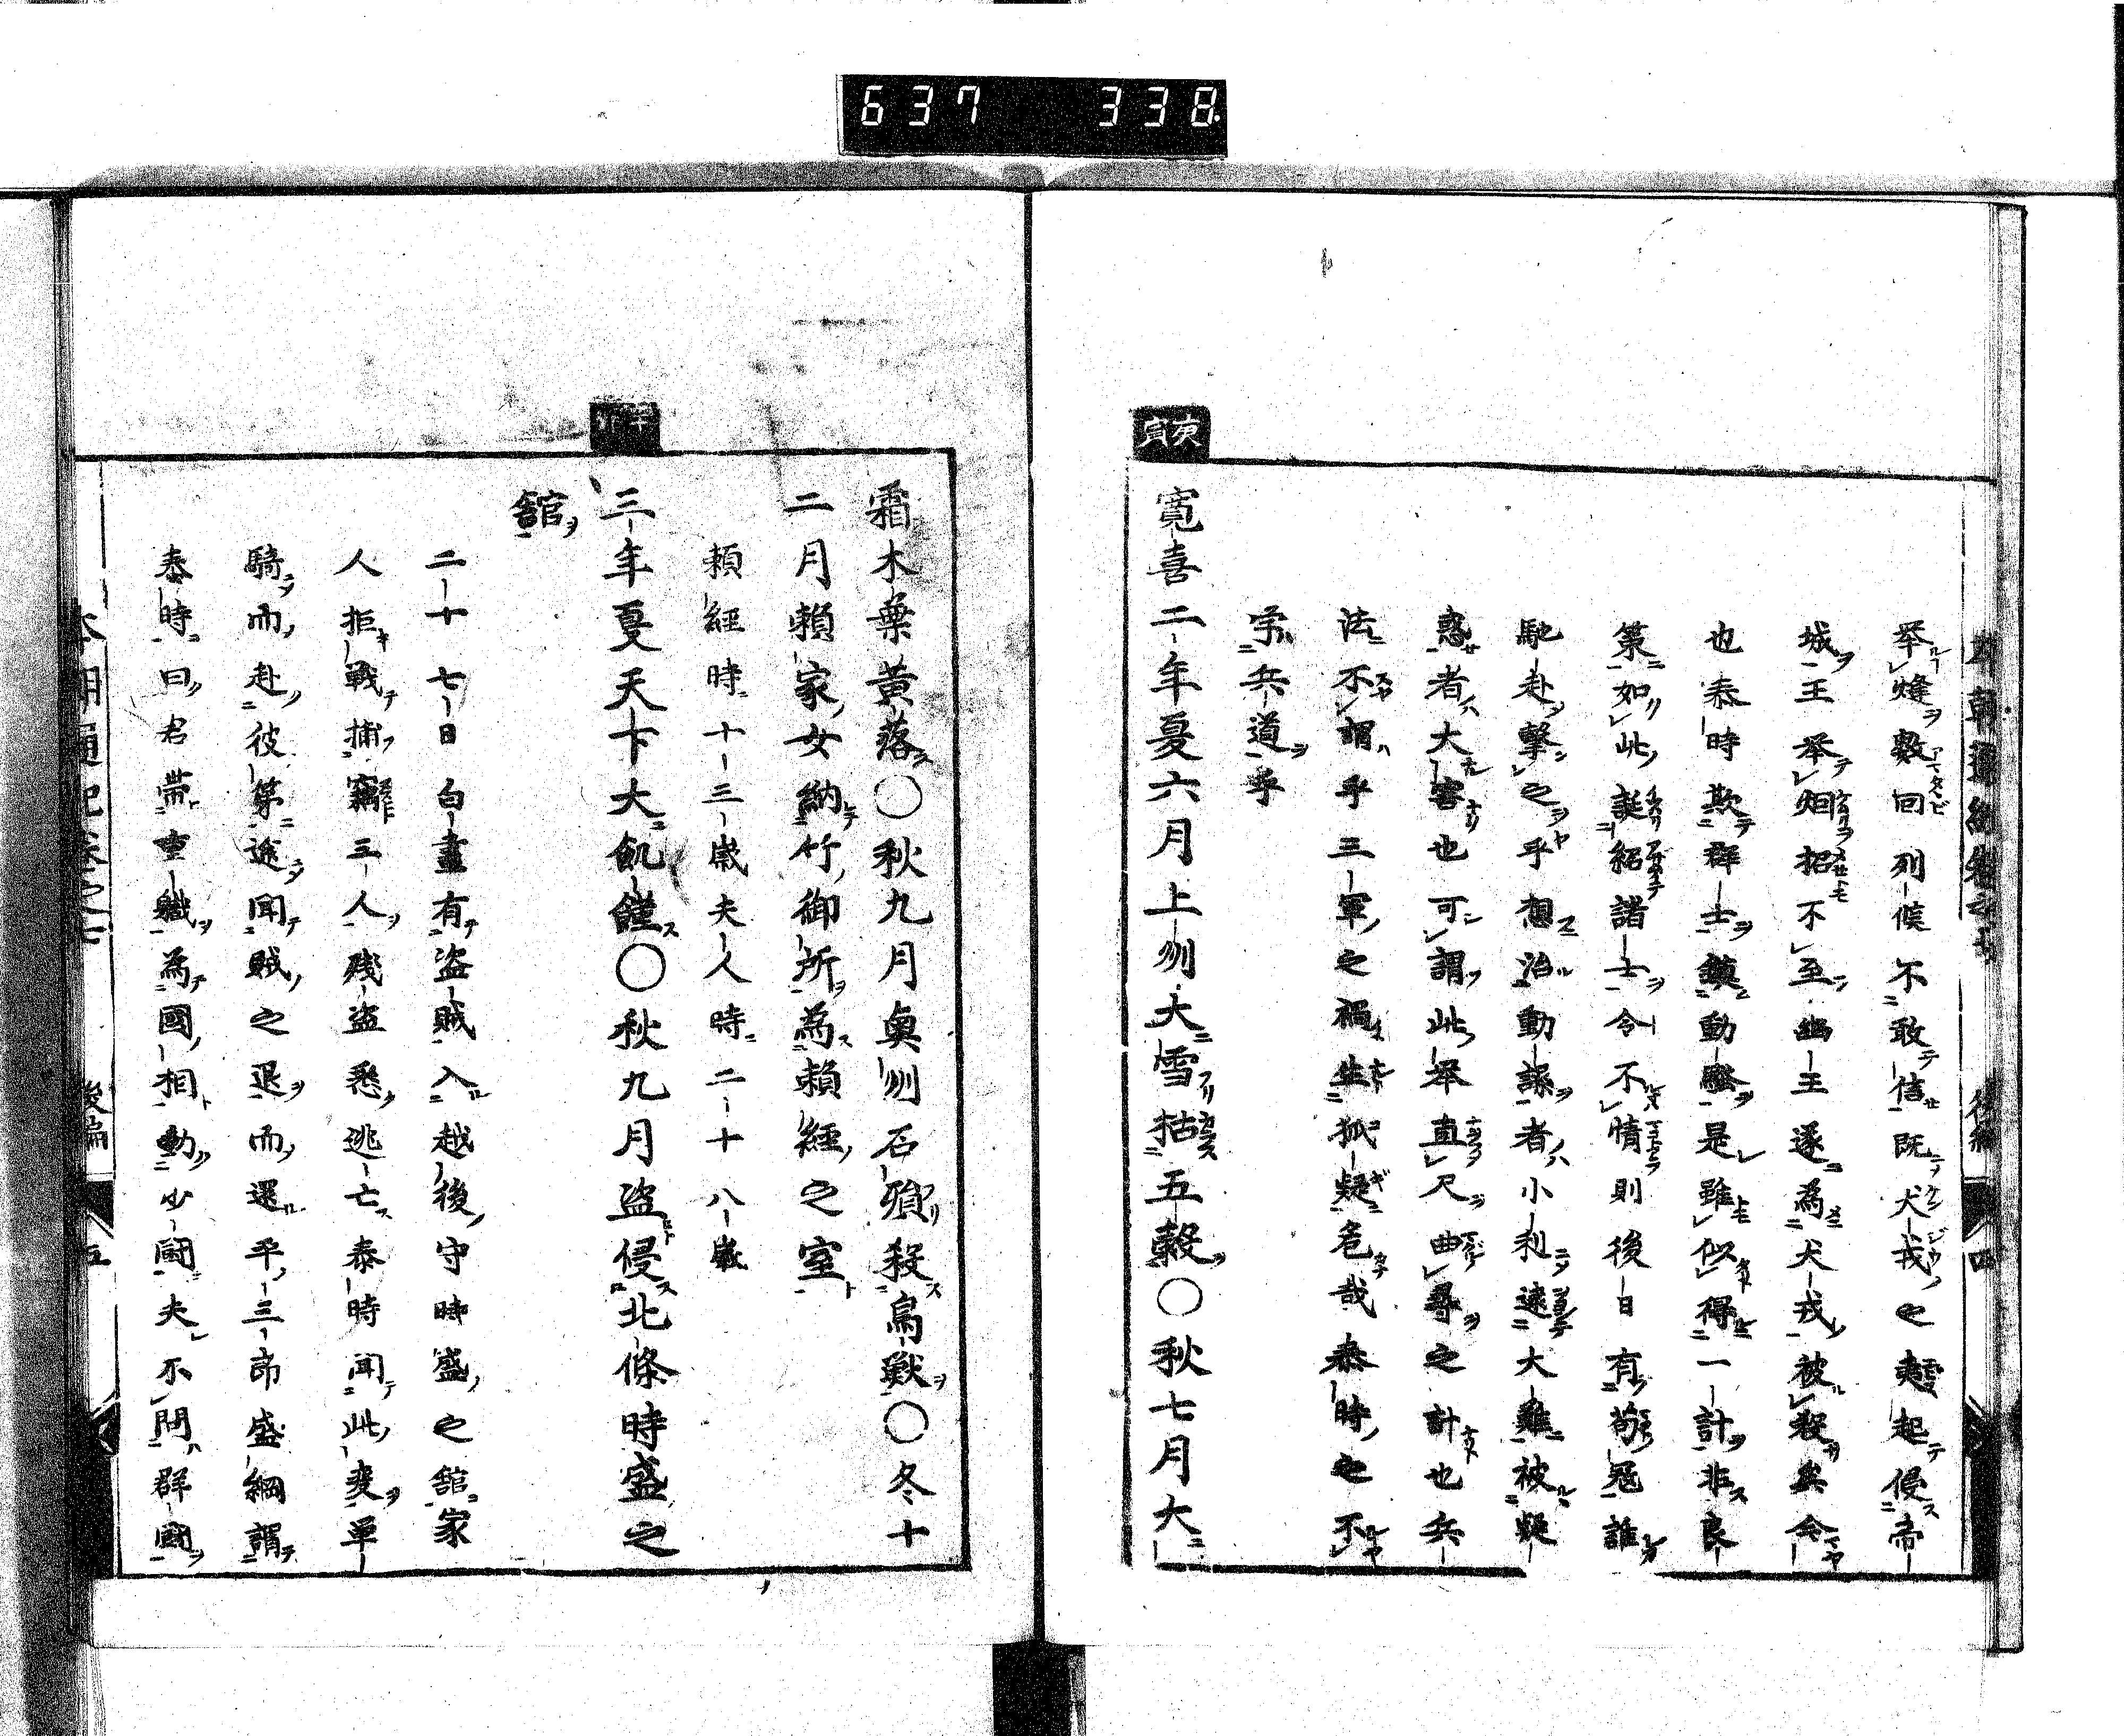 637 338
本朝通紀卷之七 後編 四
举烽數回列候不敢信既犬戎之起侵帝
城王举烟招不至幽王遂為犬戎被殺矣今
也泰時欺群士鎮動騷是雖似得一計非良
策如此誕紹諸士令不情則後日有苟冦誰
馳赴擊之乎想治動謀者小利速大難被疑
惑者大害也可謂此举直尺曲尋之計也兵
法不謂乎三軍之禍生狐疑危哉泰時之不
学兵道乎
庚寅
寛喜二年夏六月上刕大雪枯五穀〇秋七月大
霜木葉黄落〇秋九月奥刕石殞殺鳥獣〇冬十
二月頼家女納竹御所為頼經之室
頼經時十三歳夫人時二十八歳
辛卯
三年夏天下大飢饉〇秋九月盗侵北條時盛之
舘
二十七日白晝有盗賊入越後守時盛之舘家
人拒戰捕竊三人殘盗悉逃亡泰時聞此変単
騎而赴彼第途聞賊之退而還平三郎盛綱謂
泰時曰君帯重職為國相動少闘夫不問群國
本朝通紀卷之七 後編 五